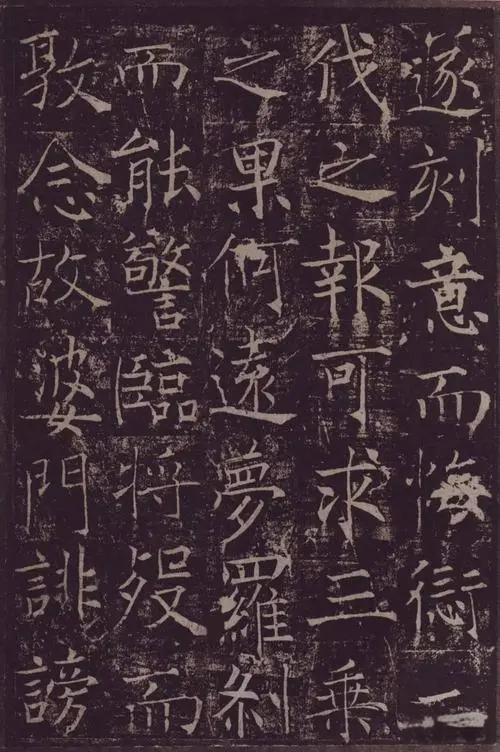 遂刻意而悔愆一
伐之報可求三乘
之果何遠夢羅刹
而能警臨將歿而
敦念故婆門誹謗